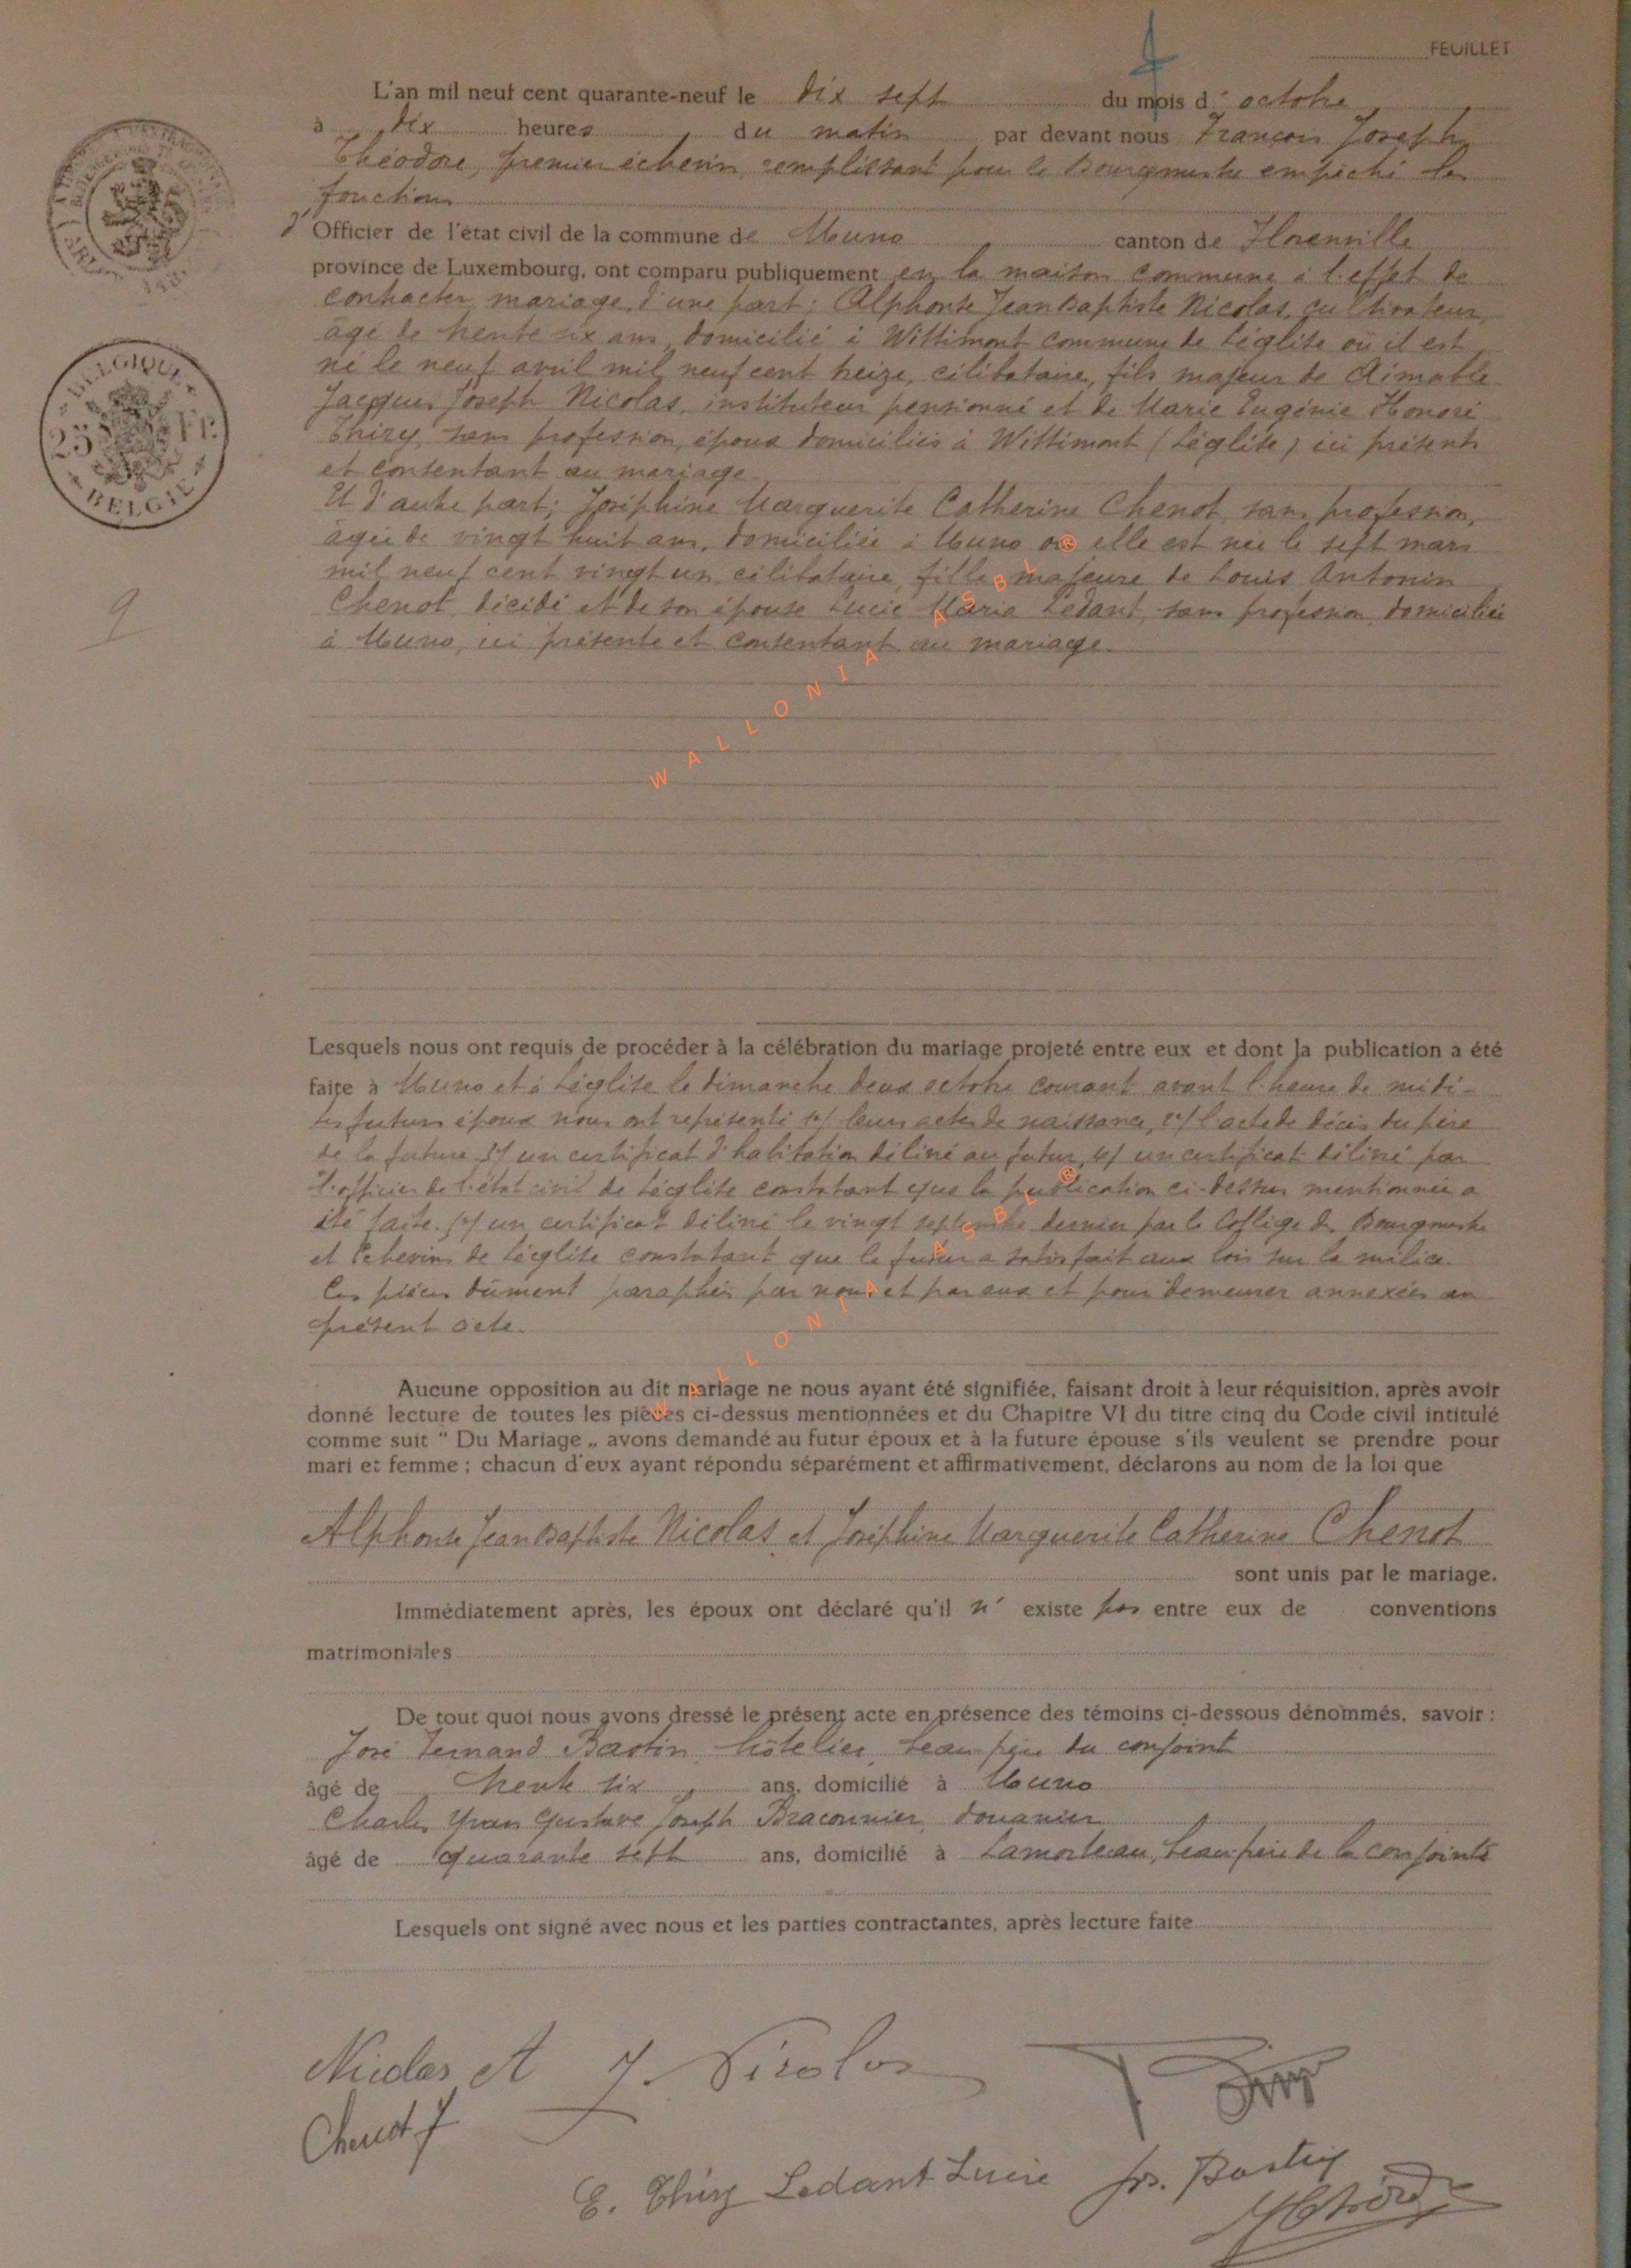 FEUILLET
L'an mil neuf cent quarante-neuf le dix sept du mois d' octobre
à dix heures du matin par devant nous François Joseph
Théodore, premier échevin, remplissant pour le Bourgmestre empêché les
fonctions
d' Officier de l'état civil de la commune de Muno canton de Florenville
province de Luxembourg, ont comparu publiquement en la maison commune à l'effet de
contracter mariage, d'une part: Alphonse Jean Baptiste Nicolas, cultivateur,
âgé de trente six ans, domicilié à Wittimont commune de Léglise où il est
né le neuf avril mil neuf cent treize, célibataire, fils majeur de Aimable
Jacques Joseph Nicolas, instituteur pensionné et de Marie Eugénie Honoré
Thiry, sans profession, époux domiciliés à Wittimont (Léglise) ici présents
et consentant au mariage
Et d'autre part; Joséphine Marguerite Catherine Chenot, sans profession,
âgée de vingt huit ans, domiciliée à Muno où elle est née le sept mars
mil neuf cent vingt un, célibataire, fille majeure de Louis Antonin
Chenot, décédé et de son épouse Lucie Maria Ledant, sans profession, domiciliée
à Muno, ici présente et consentant au mariage.
9
BELGIQUE
25 FR
BELGIE
WALLONIA ASBL ®
Lesquels nous ont requis de procéder à la célébration du mariage projeté entre eux et dont la publication a été
faite à Muno et à Léglise le dimanche deux octobre courant avant l'heure de midi -
Les futurs époux nous ont représenté 1°/ leurs actes de naissance, 2°/ l'acte de décès du père
de la future 3°/ un certificat d'habitation délivré au futur, 4°/ un certificat délivré par
l'officier de l'état civil de Léglise constatant que la publication ci-dessus mentionnée a
été faite. 5°/ un certificat délivré le vingt septembre dernier par le Collège des Bourgmestre
et Echevins de Léglise constatant que le futur a satisfait aux lois sur la milice.
Ces pièces dûment paraphées par nous et par eux et pour demeurer annexées au
présent acte.
WALLONIA ASBL ®
Aucune opposition au dit mariage ne nous ayant été signifiée, faisant droit à leur réquisition, après avoir
donné lecture de toutes les pièces ci-dessus mentionnées et du Chapitre VI du titre cinq du Code civil intitulé
comme suit " Du Mariage „ avons demandé au futur époux et à la future épouse s'ils veulent se prendre pour
mari et femme ; chacun d'eux ayant répondu séparément et affirmativement, déclarons au nom de la loi que
Alphonse Jean Baptiste Nicolas et Joséphine Marguerite Catherine Chenot
sont unis par le mariage.
Immédiatement après, les époux ont déclaré qu'il n' existe pas entre eux de conventions
matrimoniales
De tout quoi nous avons dressé le présent acte en présence des témoins ci-dessous dénommés, savoir :
José Fernand Bastin, hôtelier, beau frère du conjoint
âgé de trente six ans, domicilié à Muno
Charles Yvan Gustave Joseph Braconnier, douanier
âgé de quarante sept ans, domicilié à Lamorteau, beau-frère de la conjointe
Lesquels ont signé avec nous et les parties contractantes, après lecture faite
Nicolas A J. Nicolas
Chenot J
E. Thiry Ledant Lucie Jos. Bastin